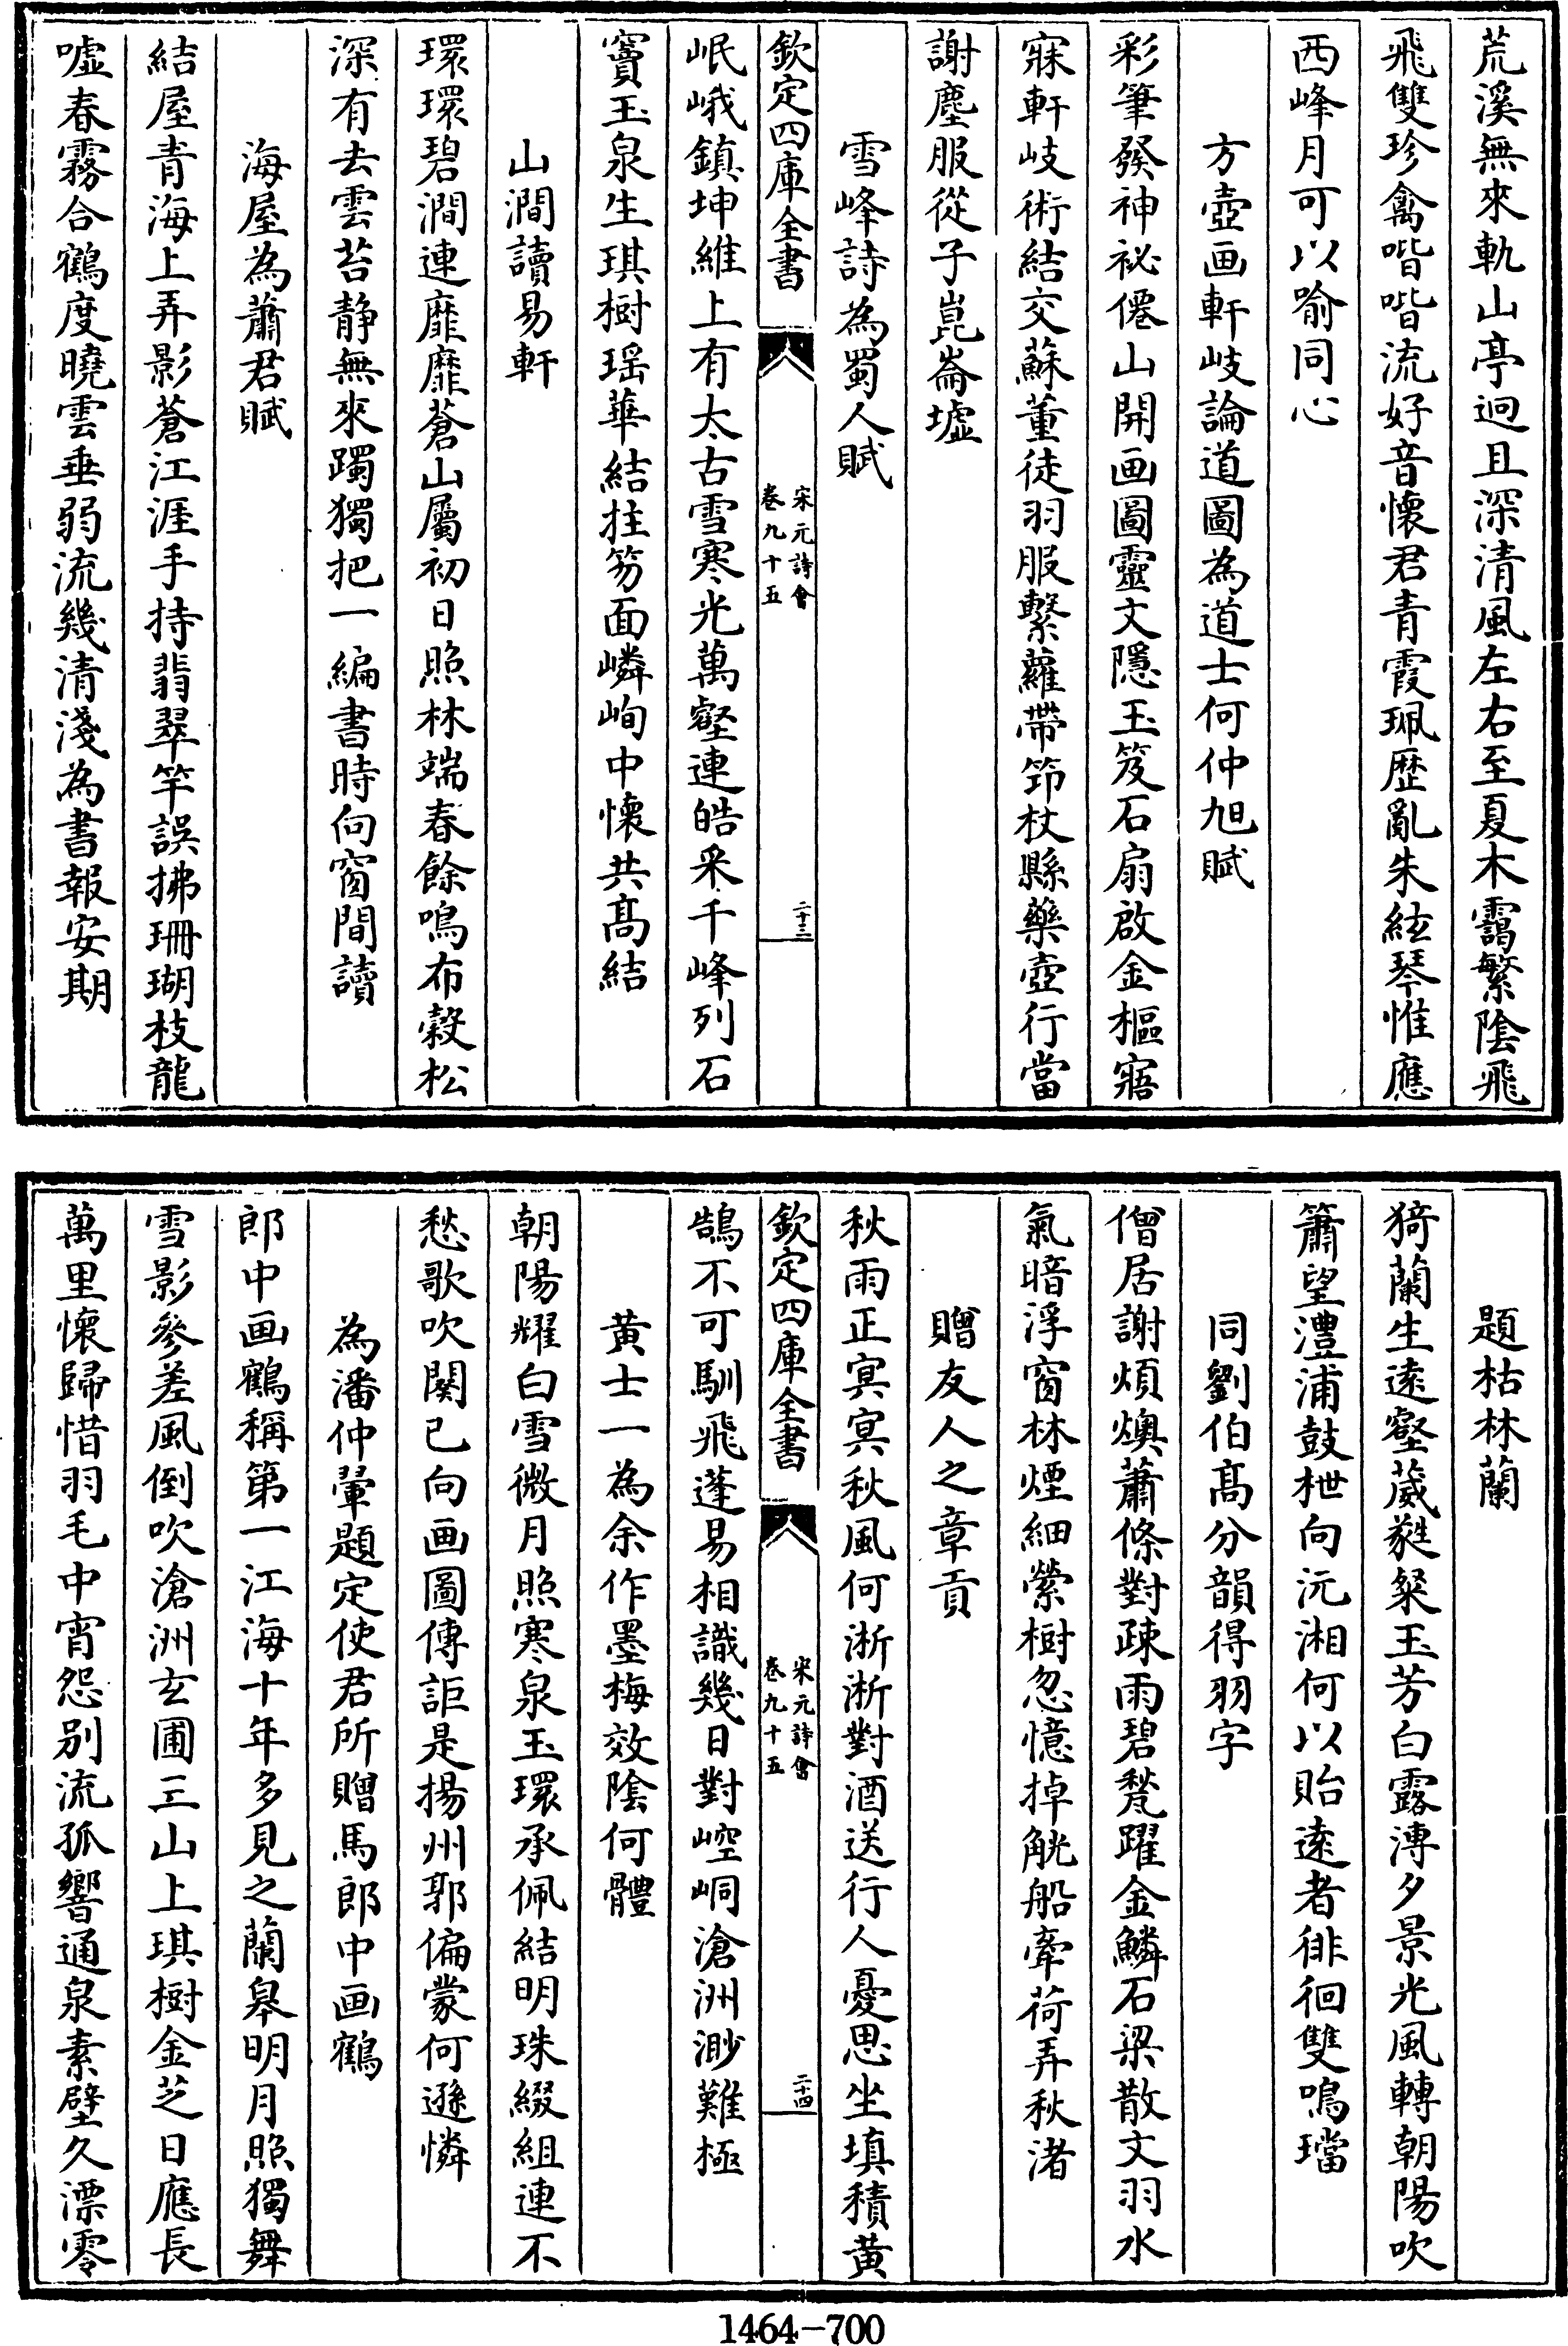 荒溪無來軌山亭迥且深清風左右至夏木靄繁陰飛
飛雙珍禽喈喈流好音懷君青霞珮歴亂朱絃琴惟應
西峰月可以喻同心
方壺画軒岐論道圖為道士何仲旭賦
彩筆發神祕僊山開画圖靈文隱玉笈石扇啟金樞寤
寐軒岐術結交蘇董徒羽服繫蘿帶笻杖縣藥壺行當
謝塵服從子崑崙墟
雪峰詩為蜀人賦
欽定四庫全書
宋元詩會
卷九十五
二十三
岷峨鎮坤維上有太古雪寒光萬壑連皓采千峰列石
竇玉泉生琪樹瑶華結拄笏面嶙峋中懷共髙結
山澗讀易軒
環環碧澗連靡靡蒼山屬初日照林端春餘鳴布穀松
深有去雲苔静無來躅獨把一編書時向窗間讀
海屋為蕭君賦
結屋青海上弄影蒼江涯手持翡翠竿誤拂珊瑚枝龍
嘘春霧合鶴度曉雲垂弱流幾清淺為書報安期
題枯林蘭
猗蘭生遠壑葳蕤粲玉芳白露溥夕景光風轉朝陽吹
簫望澧浦鼓枻向沅湘何以貽遠者徘徊雙鳴璫
同劉伯髙分韻得羽字
僧居謝煩燠蕭條對疎雨碧甃躍金鱗石梁散文羽水
氣暗浮窗林煙細縈樹忽憶掉觥船牽荷弄秋渚
贈友人之章貢
秋雨正冥冥秋風何淅淅對酒送行人憂思坐填積黄
欽定四庫全書
宋元詩會
卷九十五
二十四
鵠不可馴飛蓬易相識幾日對崆峒滄洲渺難極
黄士一為余作墨梅效陰何體
朝陽耀白雪微月照寒泉玉環承佩結明珠綴組連不
愁歌吹闋已向画圖傳詎是揚州郭偏蒙何遜憐
為潘仲翬題定使君所贈馬郎中画鶴
郎中画鶴稱第一江海十年多見之蘭皋明月照獨舞
雪影參差風倒吹滄洲玄圃三山上琪樹金芝日應長
萬里懷歸惜羽毛中宵怨别流孤響通泉素壁久漂零
1464-700